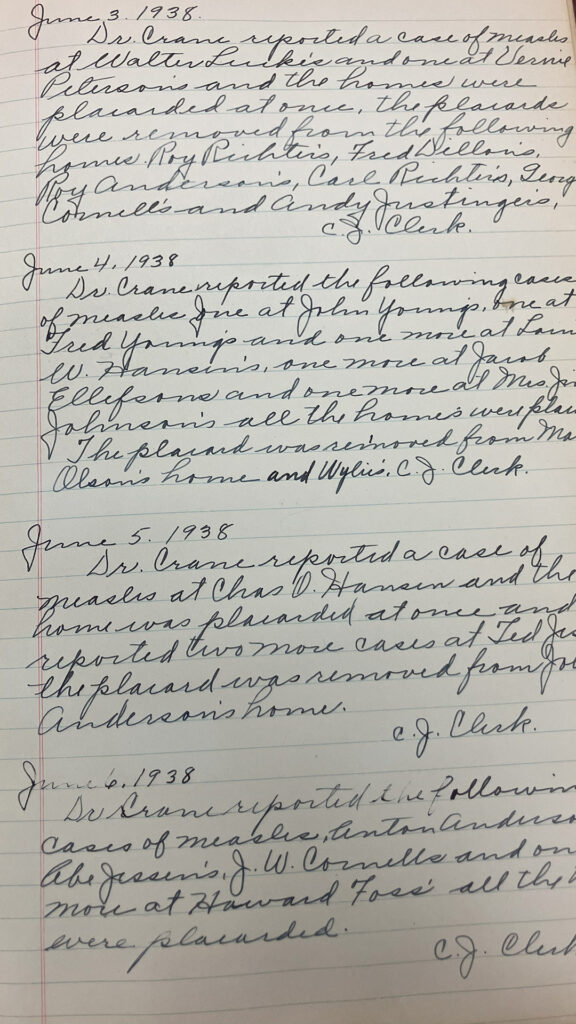 June 3, 1938.
Dr. Crane reported a case of measles
at Walter and one at Vernie
Peterson's and the homes were
placarded at once, the placards
were removed from the following
homes Roy Richter's, Fred Dillon's,
Roy Anderson's, Carl Richter's, Georg
Cornell's and Andy Justinger's,
C.J. Clerk.
June 4, 1938
Dr. Crane reported the following cases
of measles One at John Young's, one at
Fred Young's and one more at
W. Hansen's, one more at Jacob
Ellefsons and one more at Mrs.
Johnson's all the homes were
The placard was removed from
Olson's home and Wylie's. C.J. Clerk.
June 5. 1938
Dr. Crane reported a case of
measles at Chas O. Hansen and the
home was placarded at once and
reported two more cases at Ted
the placard was removed from
Anderson's home.
C.J. Clerk.
June 6, 1938
Dr Crane reported the followin
cases of measles, Anton Anderso
Abe Jessen's, J. W. Cornells and on
more at Howard Foss' all the
were placarded.
C.J. Clerk